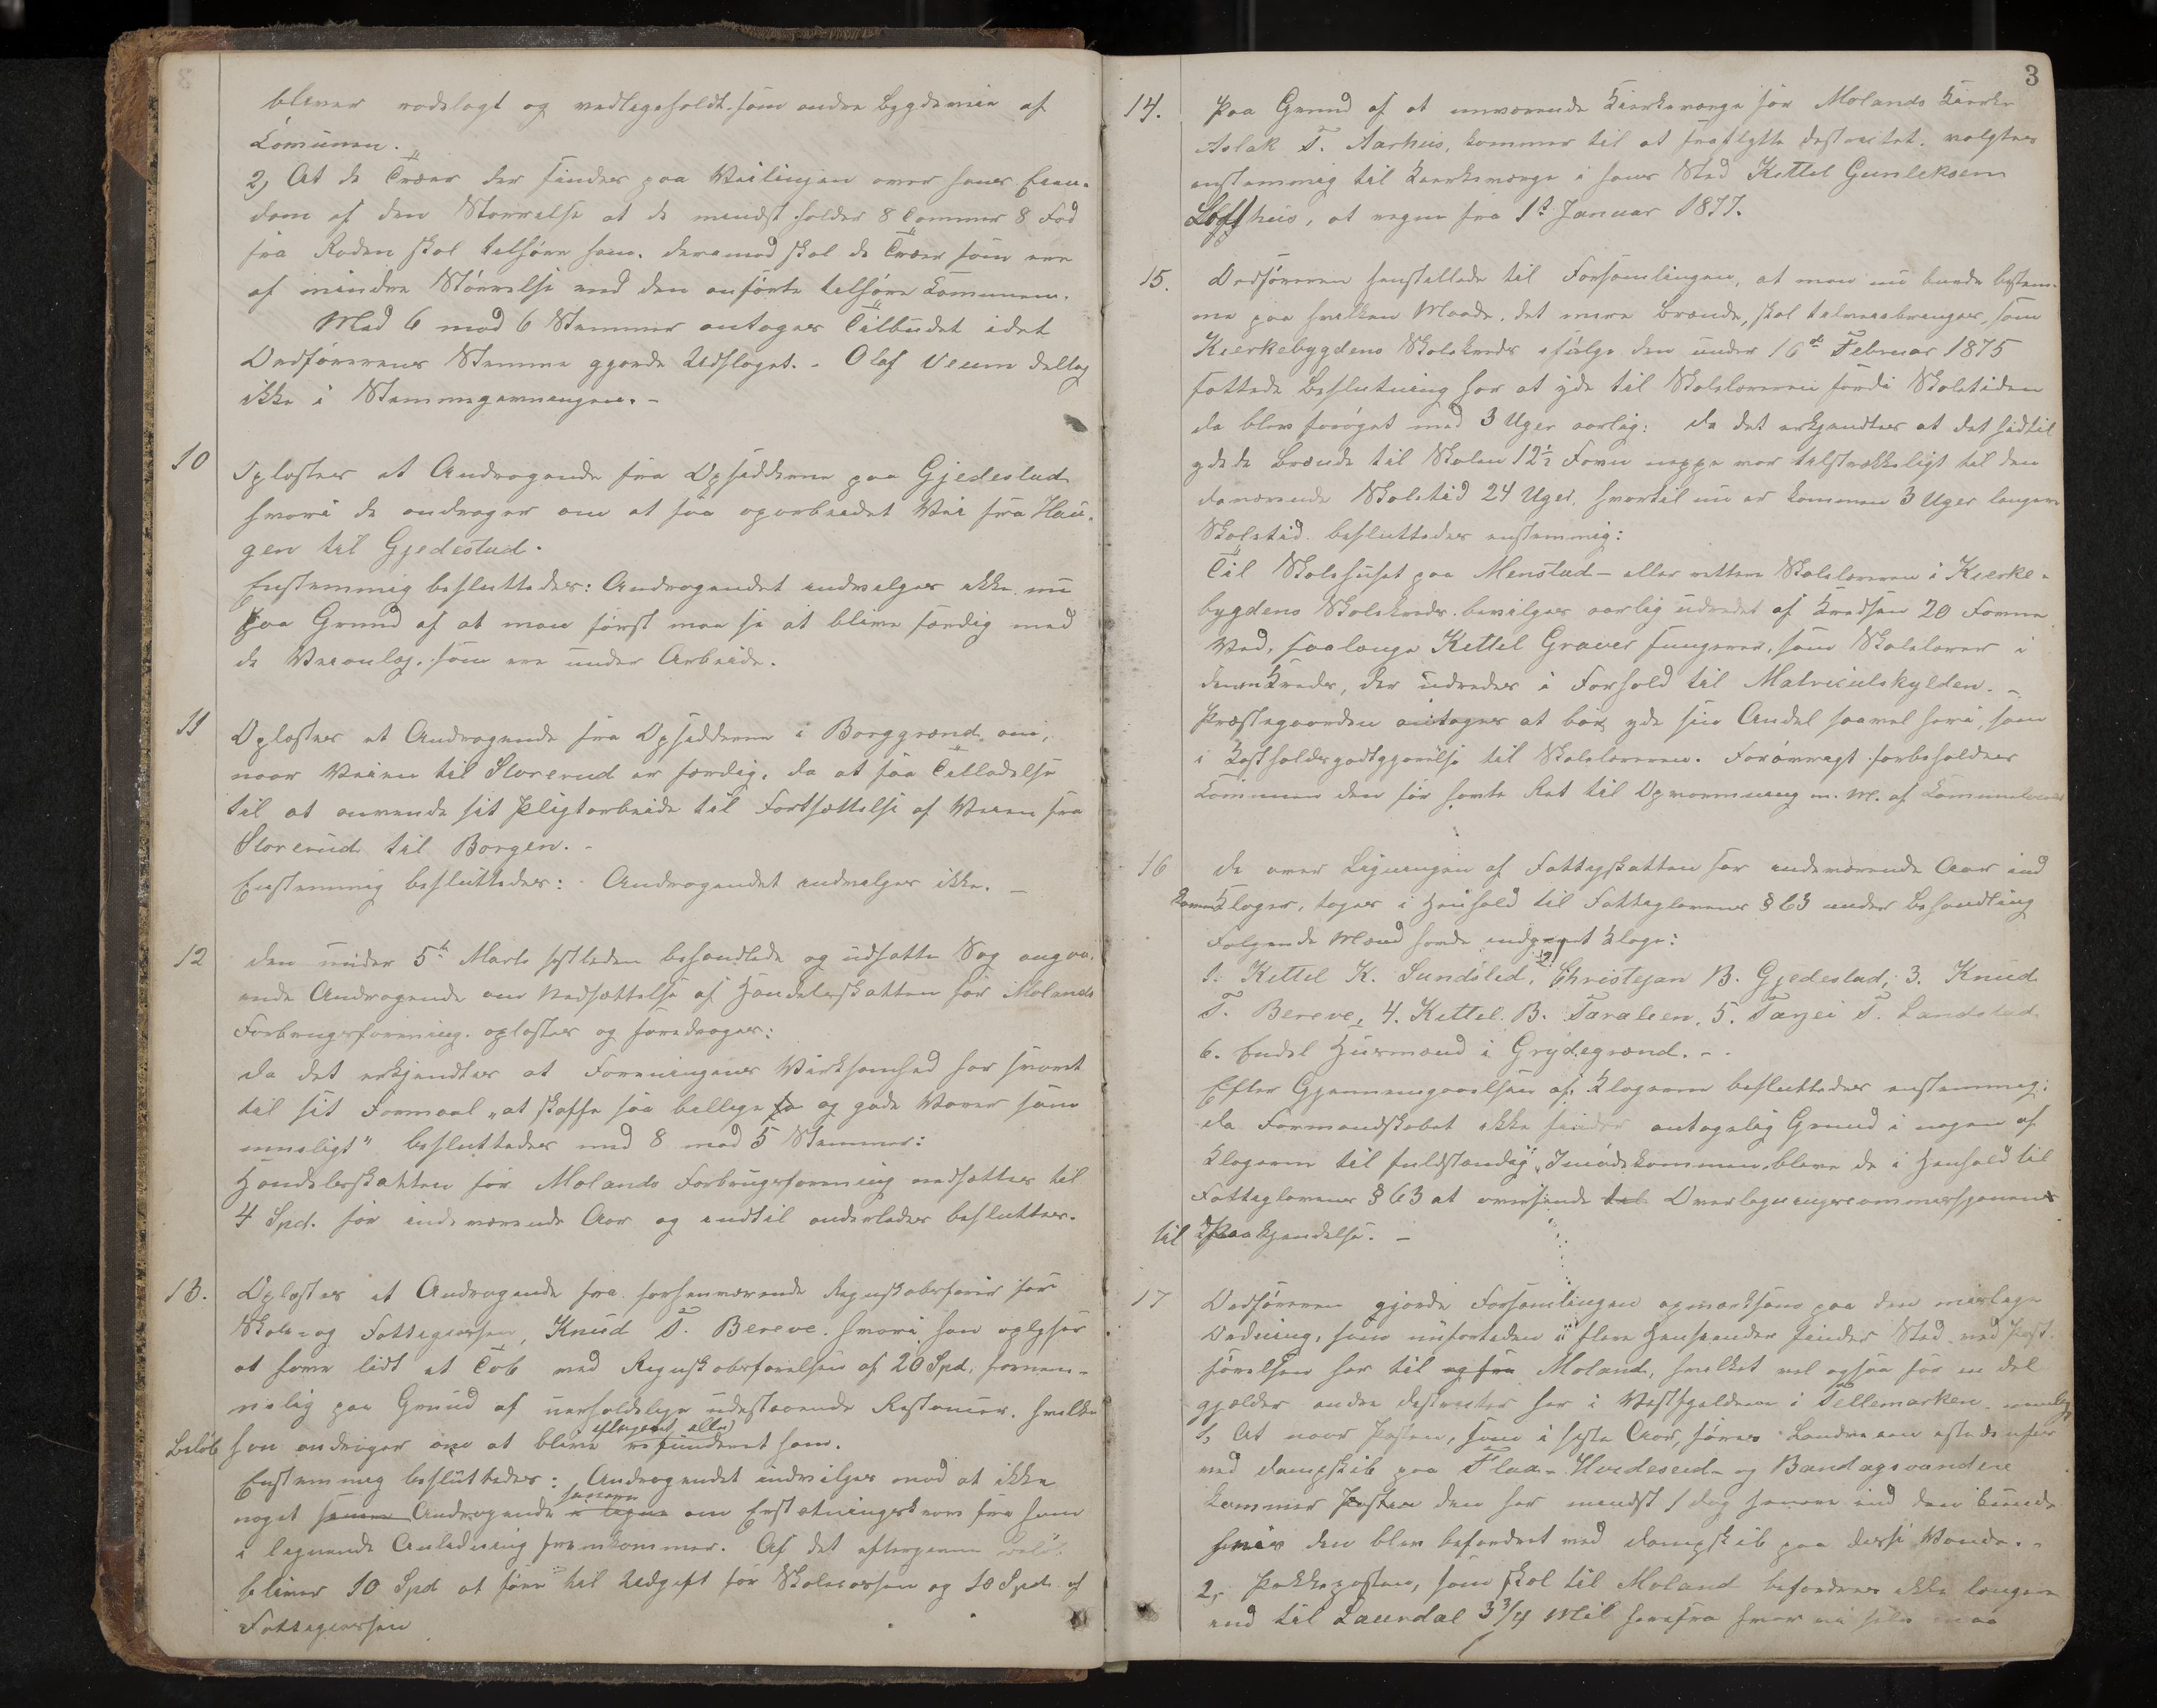 bliver rodelagt og vedligeholdt som andre Bygdeveie af
Comunen.
2, At de Træer der findes paa Veilinjen over hans Eien-
dom af den Størrelse at de mindst holder 8 Tommer 8 Fod
fra Roden skal tilhøre ham, deremod skal de Træer som ere
af mindre Størrelse end den anførte tilhøre Comunen.
Med 6 mod 6 Stemmer antoges Tilbudet idet
Ordførerens Stemme gjorde Udslaget. - Olaf Veum deltog
ikke i Stemmegivningen. -
10 Oplæstes et Andragende fra Opsidderne paa Gjedestad
hvori de andrager om at faa oparbeidet Vei fra Hau-
gen til Gjedestad.
Enstemmig besluttedes: Andragendet indvilges ikke nu
paa Grund af at man først maa se at blive færdig med
de Veianlæg, som ere under Arbeide.
11 Oplæstes et Andragende fra Opsidderne i Borggrænd om,
naar Veien til Storerud er færdig, da at faa Tilladelse
til at anvende sit Pligtarbeide til Fortsættelse af Veien fra
Storerud til Borgen. -
Enstemmig besluttedes: Andragendet indvilges ikke. -
12 Den under 5te Marts sistleden behandlede og udsatte Sag angaa-
ende Andragende om Nedsættelse af Handelsskatten for Molands
Forbrugsforening oplæstes og foredroges:
Da det erkjendtes at Foreningens Virksomhed har svaret
til sit Formaal "at skaffe saa billige og gode Varer som
muligt" besluttedes med 8 mod 5 Stemmer:
Handelsskatten for Molands Forbrugsforening nedsættes til
4 Spd. for indeværende Aar og indtil anderledes besluttes.
13. Oplæstes et Andragende fra forhenværende Regnskabsfører for
Skole- og Fattigcassen, Knud T. Bereve hvori han oplyser
at have lidt et Tab ved Regnskabsførelsen af 20 Spd. fornem-
melig paa Grund af uerholdelige udestaaende Restancer, hvilke
eftergivet eller
Beløb han andrager om at blive refunderet ham.
Enstemmig besluttedes: Andragendet indvilges mod at ikke
senere
noget senere Andragende i legne om Erstatningskrav fra ham
i lignende Anledning fremkommer. Af det eftergivne Beløb
bliver 10 Spd at føre til Udgift for Skolecassen og 10 Spd. af
Fattigcassen
3
14. Paa Grund af at nuværende Kirkeværge for Molands Kirke
Aslak T. Aarhus, kommer til at fraflytte Destrictet, valgtes
enstemmig til Kirkeværge i hans Sted Kettel Gunleksen
Lofthus, at regne fra 1st Januar 1877.
15. Ordføreren henstillede til Forsamlingen, at man nu burde bestem-
me paa hvilken Maade, det mere Brænde, skal tilveiebringes, som
Kirkebygdens Skolekreds ifølge den under 16de Februar 1875
fattede Beslutning har at yde til Skolelæreren fordi Skoletiden
da blev forøget med 3 Uger aarlig: Da det erkjendtes at det hidtil
ydede Brænde til Skolen 12½ Favn neppe var tilstrækkeligt til den
daværende Skoletid 24 Uger, hvortil nu er kommen 3 Uger længere
Skoletid besluttedes enstemmig:
Til Skolehuset paa Menstad - eller rettere Skolelæreren i Kirke-
bygdens Skolekreds bevilges aarlig udredet af Kredsen 20 Favne
Ved, saalænge Kettel Graver fungerer, som Skolelærer i
denne Kreds, der udredes i Forhold til Matriculskylden. -
Præstegaarden antages at bør yde sin Andel saavel heri, som
i Kostholdsgodtgjørelse til Skolelæreren. Forøvrigt forbeholdes
Comunen den før havte Ret til Opvarmning m. M. af Comunelocalet
16 Da over Ligningen af Fattigskatten for indeværende Aar ind
komne Klager, toges i Henhold til Fattiglovens § 63 under Behandling
Følgende Mænd havde indgivet Klage:
1. Kettel K. Sundsled, 2, Christejan B. Gjedestad, 3. Knud
T. Bereve, 4. Kettel B. Taraleen, 5. Tarjei T. Landstad
6. Endel Husmænd i Grydegrænd. -
Efter Gjennemgaaelsen af Klagerne besluttedes enstemmig:
Da Formandskabet ikke finder antagelig Grund i nogen af
Klagerne til fuldstændig Imødekommen, bleve de i Henhold til
Fattiglovens § 63 at oversende til Overligningscommissjonen
til Paakjendelse. -
17 Ordføreren gjorde Forsamlingen opmærksom paa den mislige
Ordning, som nufortiden i flere Henseender finder Sted ved Post-
førelsen her til og fra Moland, hvilket vel ogsaa for en Del
gjælder andre Destricter her i Vestfjeldene i Tellemarken nemlig
1, At naar Posten, som i siste Aar, føres Landveien istedenfor
med Dampskib paa Flaa- Hvideseid- og Bandagsvandene
kommer Posten den her mindst 1 Dag senere end den burde
hvis den blev befordret med Dampskib paa disse Vande. -
2, Pakkeposten, som skal til Moland befordres ikke længere
end til Laurdal 3 3/4 Mil herfra hvor vi selv maa